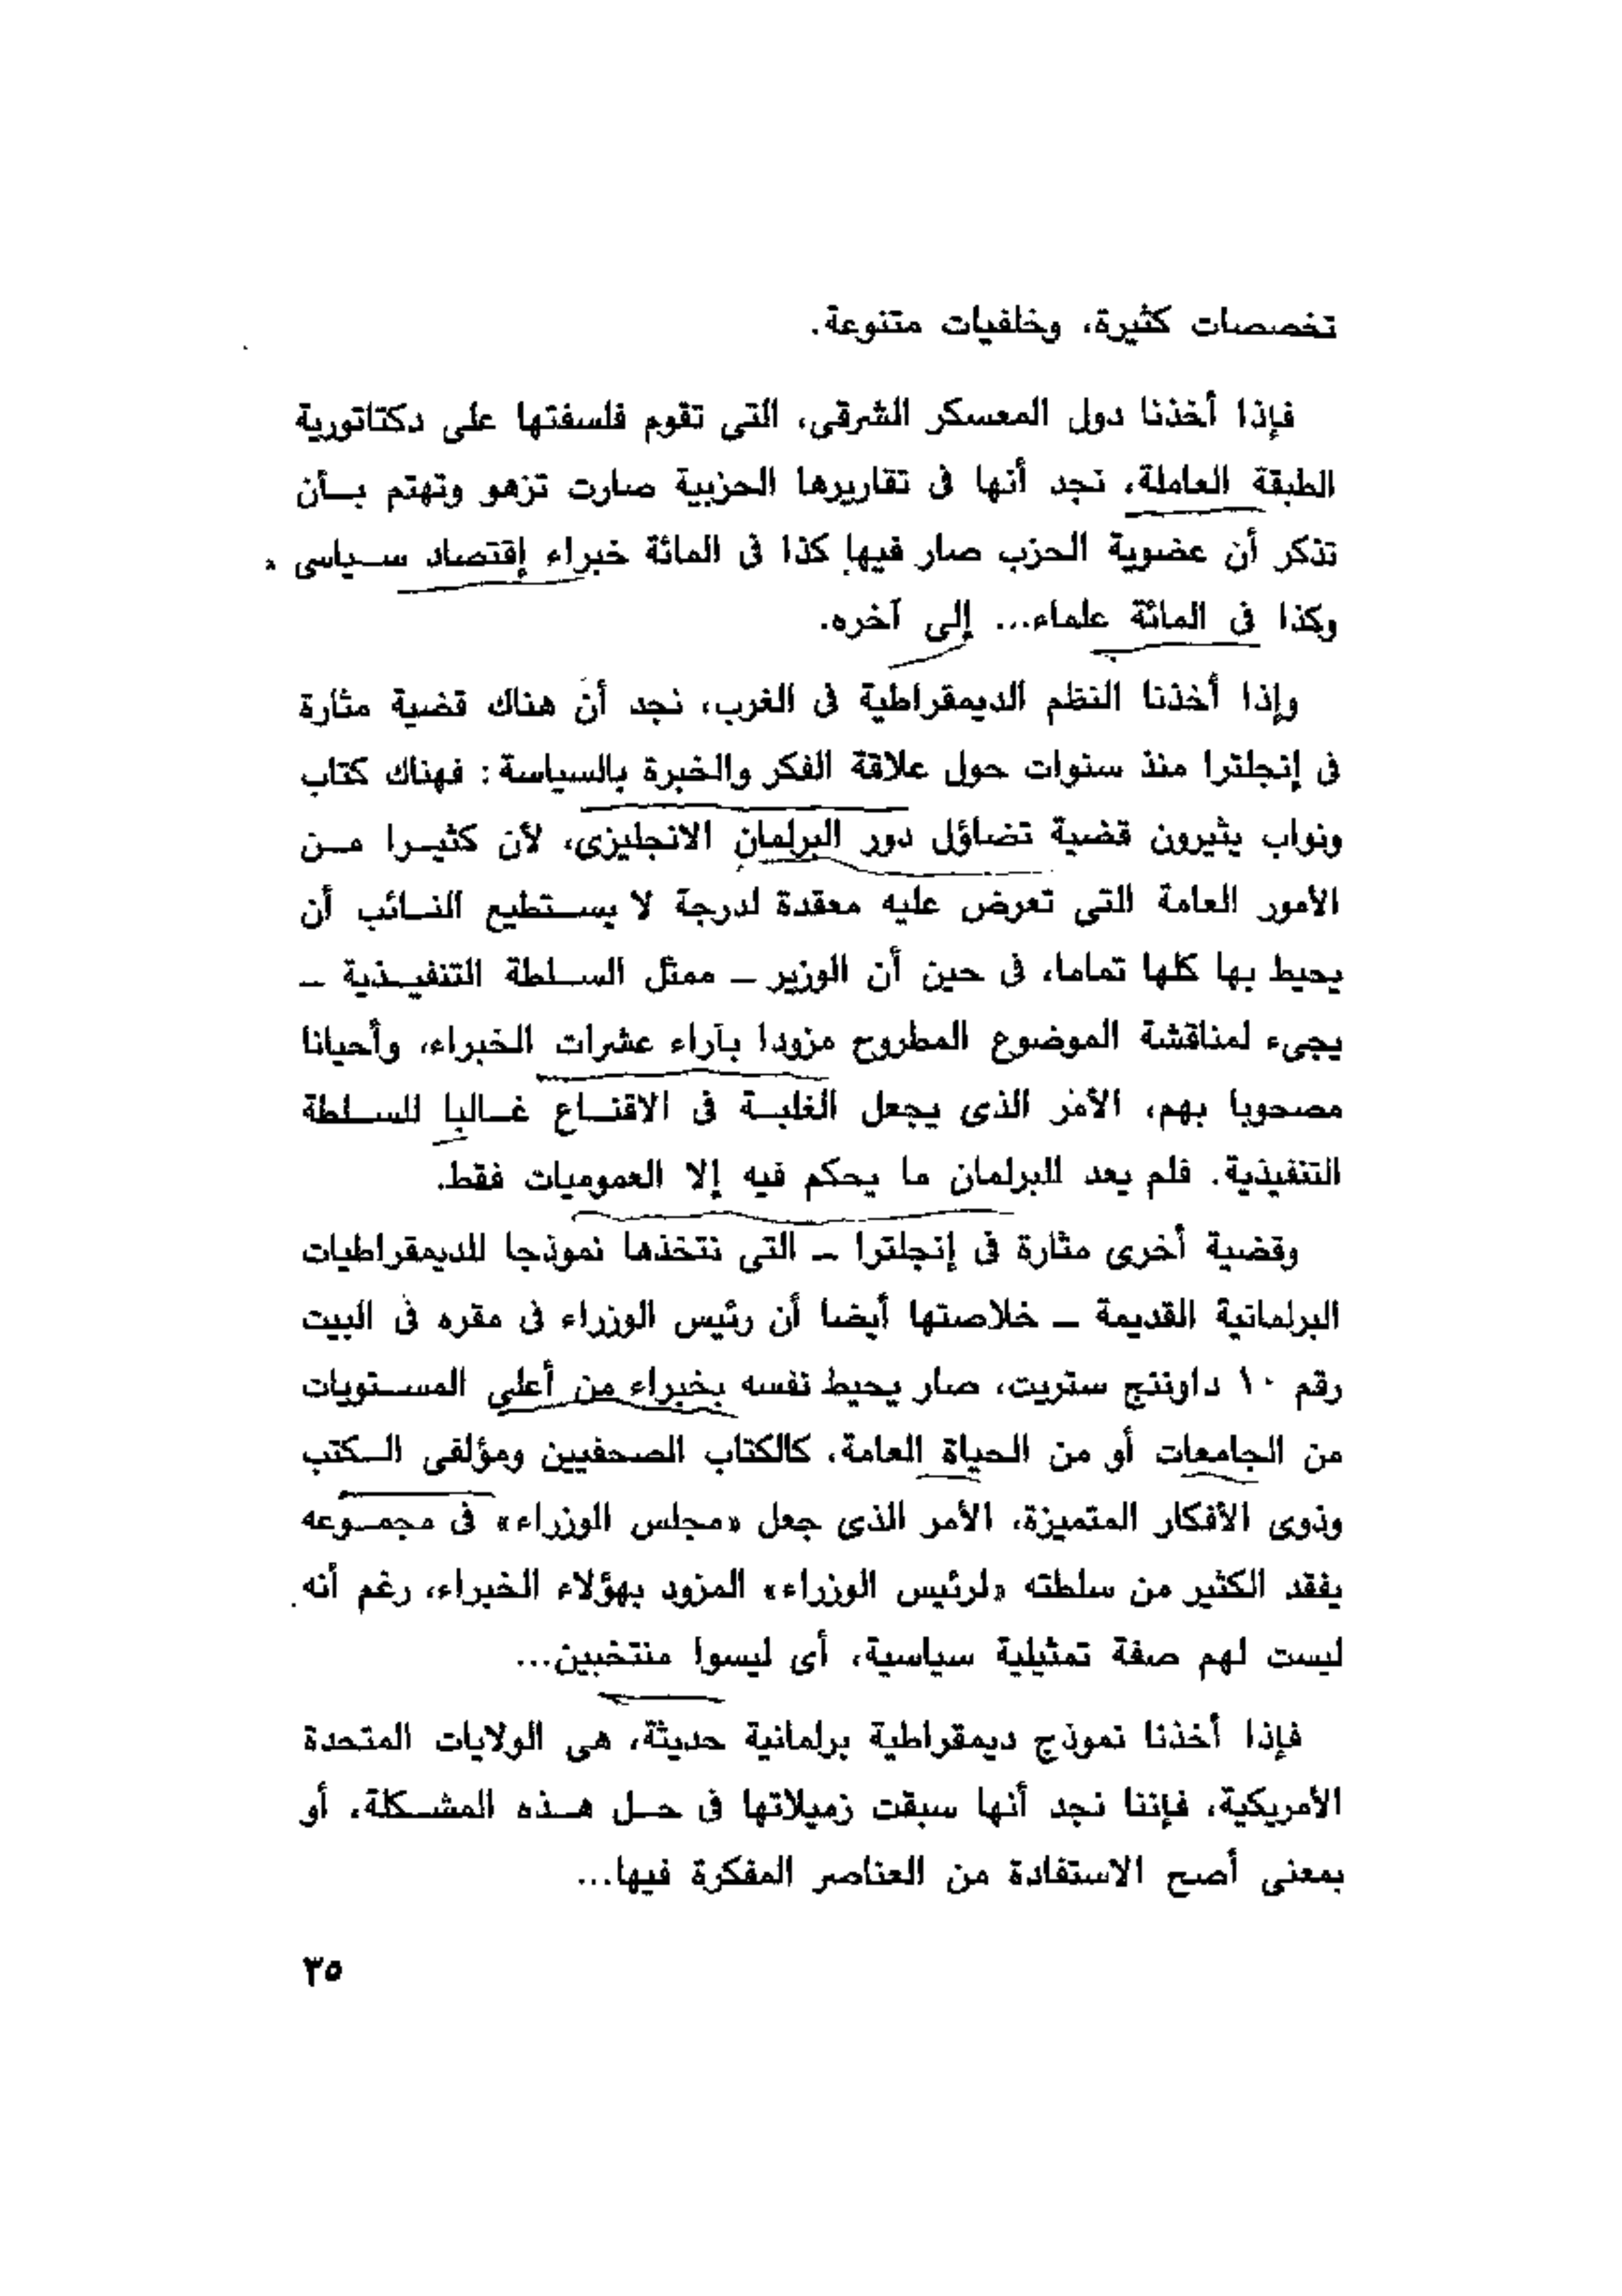 تخصصات كثيرة، وخلفيات متنوعة.
فإذا أخذنا دول المعسكر الشرقى، التى تقوم فلسفتها على دكتاتورية
الطبقة العاملة، نجد أنها فى تقاريرها الحزبية صارت تزهو وتهتم بـأن
تذكر أن عضوية الحزب صار فيها كذا فى المائة خبراء إقتصاد سـياسى
وكذا فى المائة علماء... إلى آخره.
وإذا أخذنا النظم الديمقراطية فى الغرب، نجد أن هناك قضية مثارة
فى إنجلترا منذ سنوات حول علاقة الفكر والخبرة بالسياسة: فهناك كتاب
ونواب يثيرون قضية تضاؤل دور البرلمان الانجليزى، لأن كثيـرا مـن
الأمور العامة التى تعرض عليه معقدة لدرجة لا يسـتطيع النـائب أن
يحيط بها كلها تماما، فى حين أن الوزير ــ ممثل السـلطة التنفيـذية ــ
يجىء لمناقشة الموضوع المطروح مزودا بآراء عشرات الخبراء، وأحيانا
مصحوبا بهم، الأمر الذى يجعل الغلبـة فى الاقنـاع غـالبا للسـلطة
التنفيذية. فلم يعد للبرلمان ما يحكم فيه إلا العموميات فقط.
وقضية أخرى مثارة فى إنجلترا ــ التى نتخذها نموذجا للديمقراطيات
البرلمانية القديمة ــ خلاصتها أيضا أن رئيس الوزراء فى مقره فى البيت
رقم ١٠ داوننج ستريت، صار يحيط نفسه بخبراء من أعلى المسـتويات
من الجامعات أو من الحياة العامة، كالكتاب الصحفيين ومؤلفى الـكتب
وذوى الأفكار المتميزة، الأمر الذى جعل «مجلس الوزراء» فى مجمـوعه
يفقد الكثير من سلطته «لرئيس الوزراء» المزود بهؤلاء الخبراء، رغم أنه
ليست لهم صفة تمثيلية سياسية، أى ليسوا منتخبين...
فإذا أخذنا نموذج ديمقراطية برلمانية حديثة، هى الولايات المتحدة
الأمريكية، فإننا نجد أنها سبقت زميلاتها فى حـل هـذه المشـكلة، أو
بمعنى أصح الاستفادة من العناصر المفكرة فيها...
٣٥